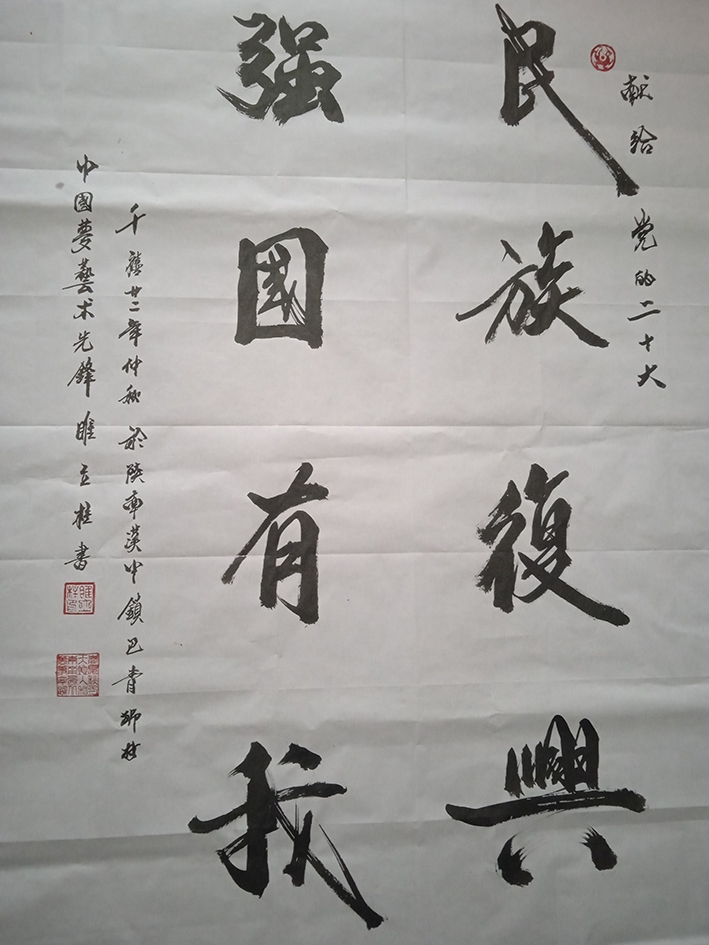 献给党的二十大
民族復興
强國有我
千禧廿二年仲秋於陕西漢中鎮巴青师村
中國夢藝术先鋒睢立桂書